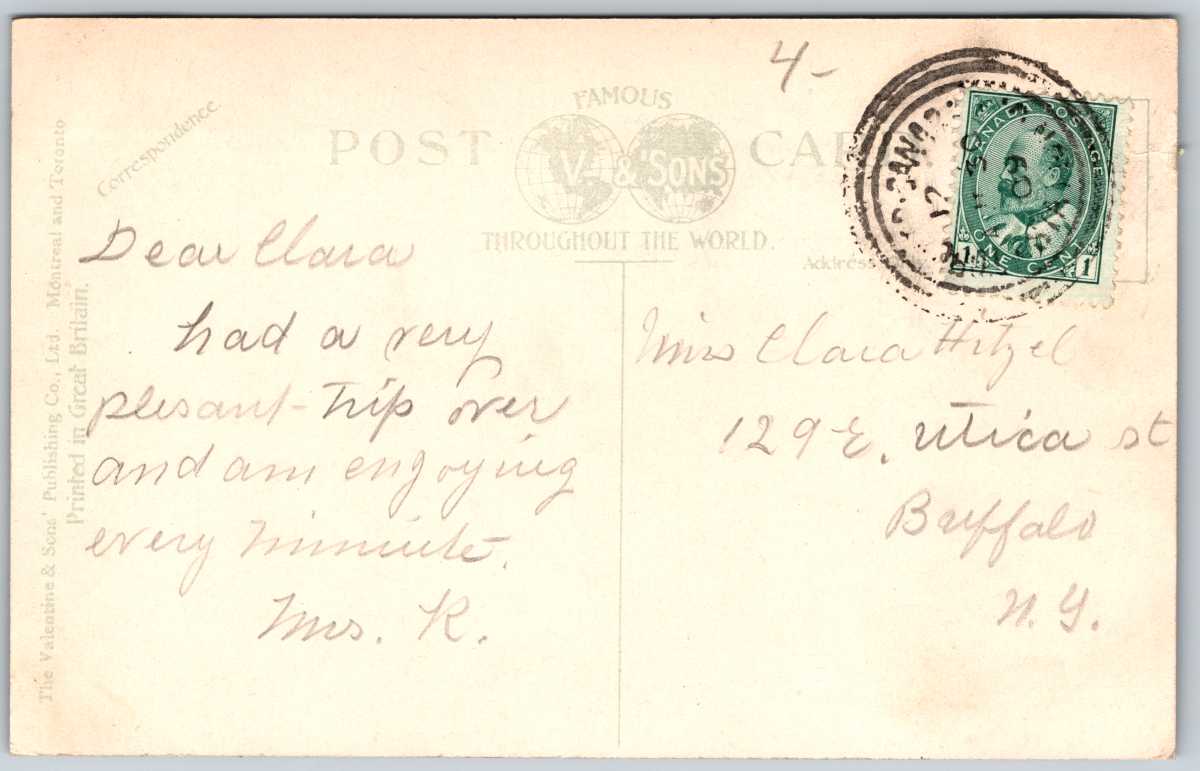 4-
FAMOUS
POST CARD
V. & SONS
THROUGHOUT THE WORLD.
Correspondence
Address
CANADA POSTAGE
ONE CENT
1
CANADA
The Valentine & Sons' Publishing Co., Ltd. Montreal and Toronto
Printed in Great Britain.
Dear Clara
had a very
plesant trip over
and am engoying
every miniute.
Mrs. K.
Miss Clara Hitzel
129 E. Utica st
Buffalo
N.Y.